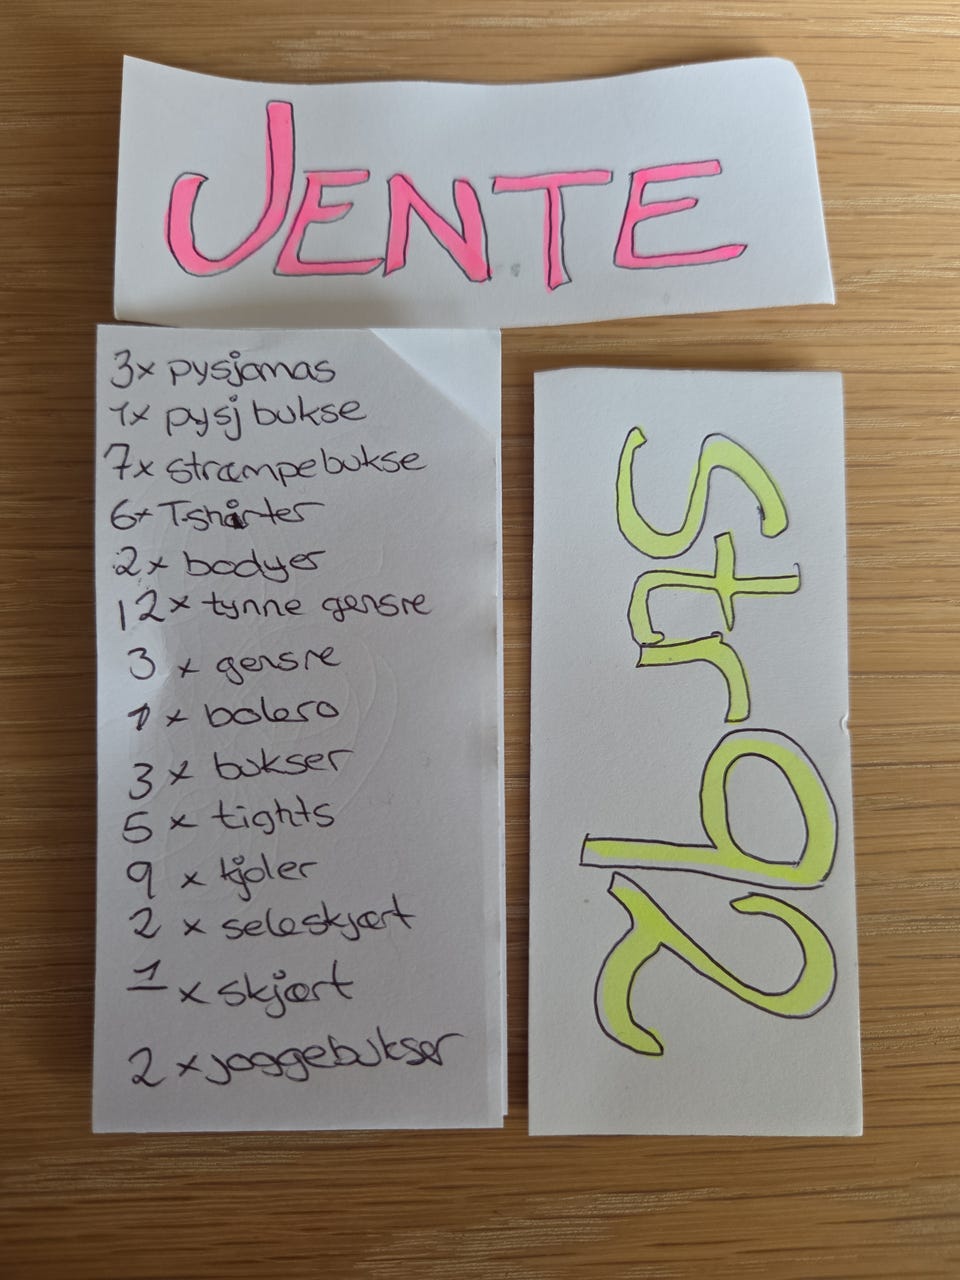 JENTE
3x pysjamas
1x pysj bukse
7x strømpebukse
6x T-shirter
2x bodyer
12x tynne gensre
3 x gensre
1 x bolero
3 x bukser
5 x tights
9 x kjoler
2 x seleskjørt
1 x skjørt
2 x joggebukser
Str 92